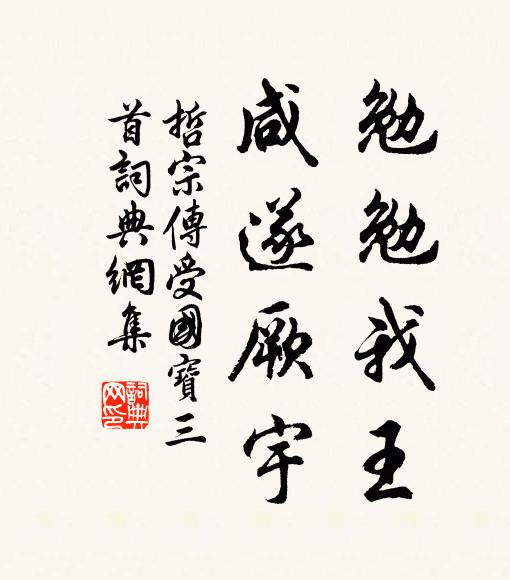 勉勉我王
咸遂厥宇
哲宗傳受國寶三
首詞典網集
詞典
网印